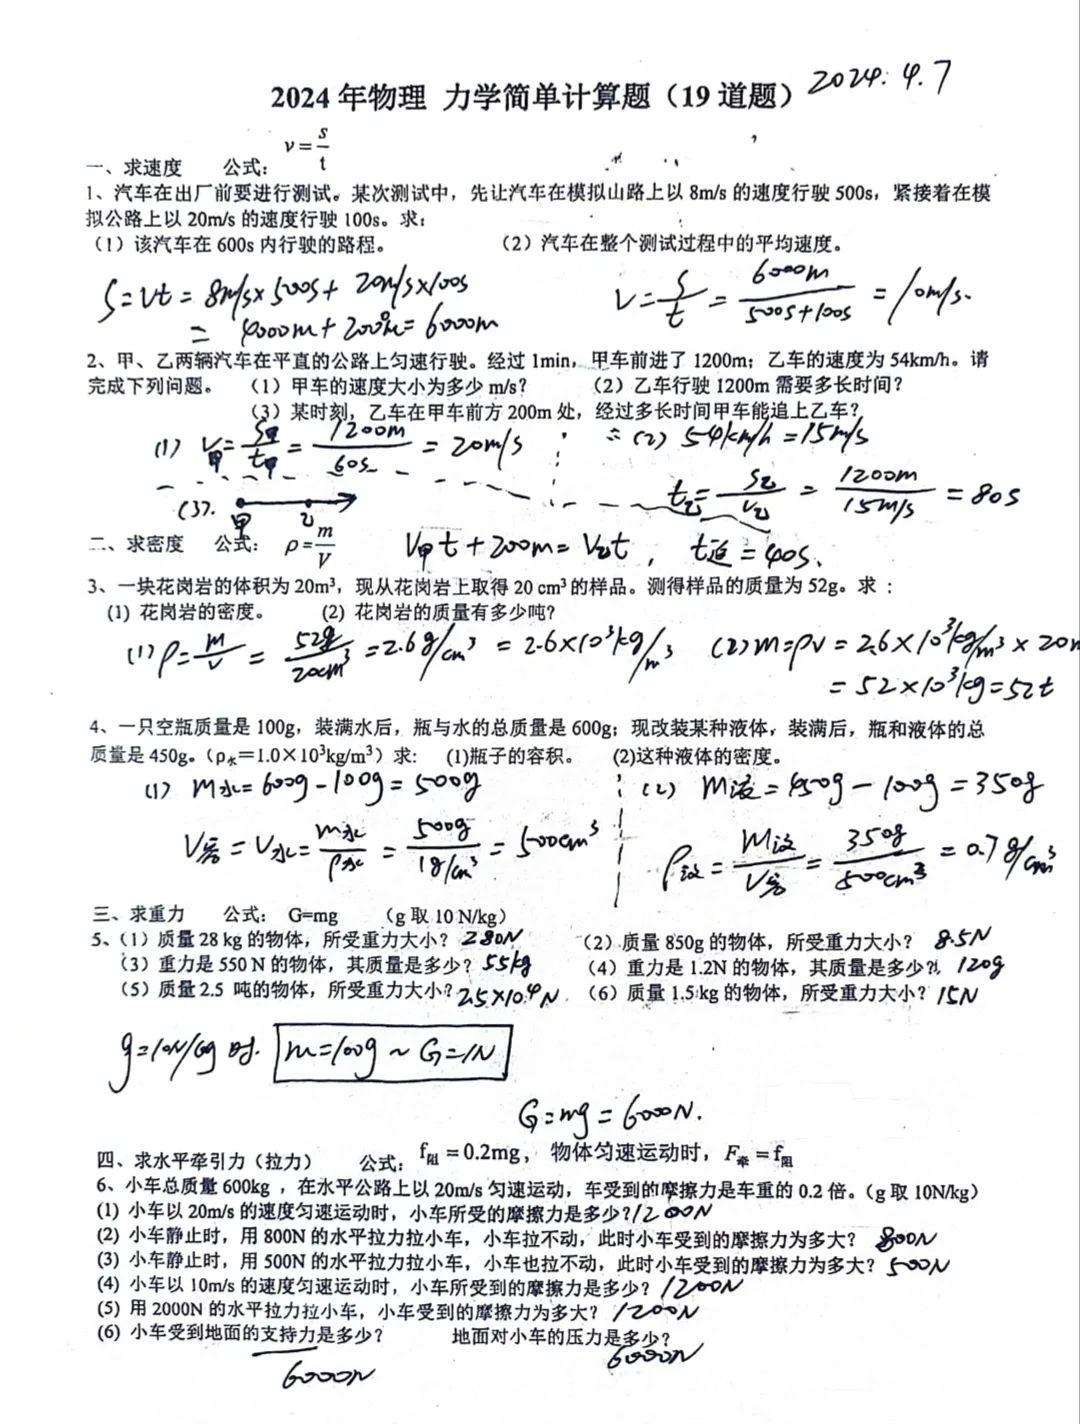 2024年物理 力学简单计算题（19道题） 2024.4.7
一、求速度 公式： v=s/t
1、汽车在出厂前要进行测试。某次测试中，先让汽车在模拟山路上以 8m/s 的速度行驶 500s，紧接着在模
拟公路上以 20m/s 的速度行驶 100s。求：
（1）该汽车在 600s 内行驶的路程。 （2）汽车在整个测试过程中的平均速度。
S=vt=8m/s×500s+20m/s×100s
=4000m+2000m=6000m
v=s/t=6000m/500s+100s=10m/s.
2、甲、乙两辆汽车在平直的公路上匀速行驶。经过 1min，甲车前进了 1200m；乙车的速度为 54km/h。请
完成下列问题。 （1）甲车的速度大小为多少 m/s？ （2）乙车行驶 1200m 需要多长时间？
（3）某时刻，乙车在甲车前方 200m 处，经过多长时间甲车能追上乙车？
(1) V甲=S甲/t甲=1200m/60s=20m/s
(2) 54km/h=15m/s
t乙=S乙/V乙=1200m/15m/s=80s
(3). 甲 乙
二、求密度 公式： ρ=m/V
V甲t+200m=V乙t， t追=40s、
3、一块花岗岩的体积为 20m³，现从花岗岩上取得 20 cm³ 的样品。测得样品的质量为 52g。求：
(1) 花岗岩的密度。 (2) 花岗岩的质量有多少吨？
(1) ρ=m/v=52g/20cm³=2.6g/cm³=2.6×10³kg/m³ (2) m=ρv=2.6×10³kg/m³×20m
=52×10³kg=52t
4、一只空瓶质量是 100g，装满水后，瓶与水的总质量是 600g；现改装某种液体，装满后，瓶和液体的总
质量是 450g。（ρ水=1.0×10³kg/m³）求： (1)瓶子的容积。 (2)这种液体的密度。
(1) m水=600g-100g=500g
V容=V水=m水/ρ水=500g/1g/cm³=500cm³
(2) m液=450g-100g=350g
ρ液=m液/V容=350g/500cm³=0.7g/cm³
三、求重力 公式： G=mg （g 取 10 N/kg）
5、（1）质量 28 kg 的物体，所受重力大小？ 280N （2）质量 850g 的物体，所受重力大小？ 8.5N
（3）重力是 550 N 的物体，其质量是多少？ 55kg （4）重力是 1.2N 的物体，其质量是多少？ 120g
（5）质量 2.5 吨的物体，所受重力大小？ 2.5×10⁴N （6）质量 1.5 kg 的物体，所受重力大小？ 15N
g=10N/kg 时. m=100g ~ G=1N
G=mg=6000N.
四、求水平牵引力（拉力） 公式： f阻=0.2mg， 物体匀速运动时，F牵=f阻
6、小车总质量 600kg ，在水平公路上以 20m/s 匀速运动，车受到的摩擦力是车重的 0.2 倍。（g 取 10N/kg）
(1) 小车以 20m/s 的速度匀速运动时，小车所受的摩擦力是多少？1200N
(2) 小车静止时，用 800N 的水平拉力拉小车，小车拉不动，此时小车受到的摩擦力为多大？ 800N
(3) 小车静止时，用 500N 的水平拉力拉小车，小车也拉不动，此时小车受到的摩擦力为多大？ 500N
(4) 小车以 10m/s 的速度匀速运动时，小车所受到的摩擦力是多少？ 1200N
(5) 用 2000N 的水平拉力拉小车，小车受到的摩擦力为多大？ 1200N
(6) 小车受到地面的支持力是多少？ 地面对小车的压力是多少？
6000N 6000N